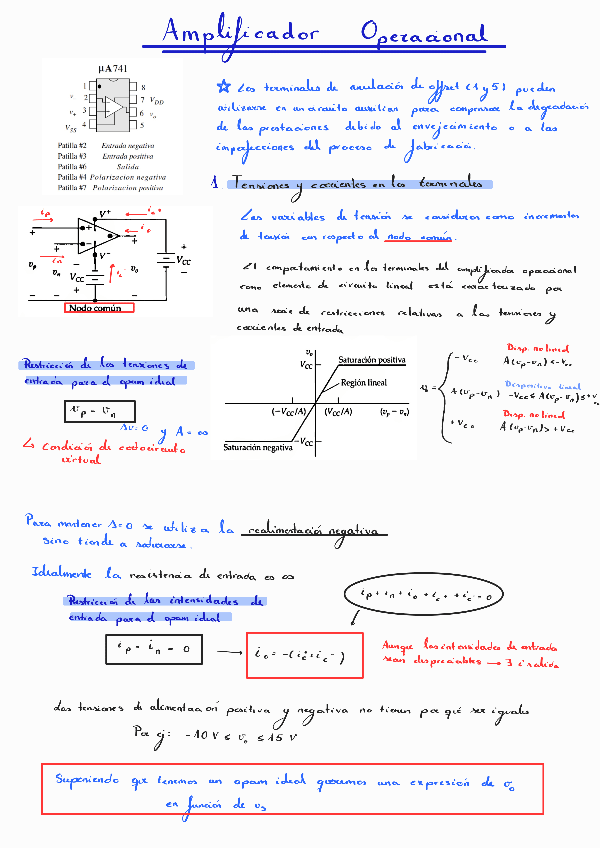 Amplificador Operacional
μA741
1 8
2 7 V_DD
3 6 v_o
4 5
v_-
v_+
V_SS
Patilla #2 Entrada negativa
Patilla #3 Entrada positiva
Patilla #6 Salida
Patilla #4 Polarizacion negativa
Patilla #7 Polarizacion positiva
☆ Los terminales de anulación de offset (1 y 5) pueden
utilizarse en un circuito auxiliar para compensar la degradación
de las prestaciones debido al envejecimiento o a las
imperfecciones del proceso de fabricación.
1 Tensiones y corrientes en los terminales
Las variables de tensión se consideran como incrementos
de tensión con respecto al nodo común.
El comportamiento en los terminales del amplificador operacional
como elemento de circuito lineal está caracterizado por
una serie de restricciones relativas a las tensiones y
corrientes de entrada
i_p V^+ i_c+
i_o
i_n V^-
v_p v_n V_CC i_c- v_o V_CC
Nodo común
Restricción de las tensiones de
entrada para el opam ideal
v_p = v_n
Δv=0 y A=∞
↳ Condición de cortocircuito
virtual
v_o
V_CC Saturación positiva
Región lineal
(−V_CC/A) (V_CC/A) (v_p − v_n)
−V_CC
Saturación negativa
Disp. no lineal
-V_cc A(v_p-v_n) < -V_cc
Dispositivo lineal
v_o = A(v_p-v_n) -V_cc ≤ A(v_p-v_n) ≤ +V_cc
Disp. no lineal
+V_cc A(v_p-v_n) > +V_cc
Para mantener Δ=0 se utiliza la realimentación negativa
sino tiende a saturarse.
Idealmente la resistencia de entrada es ∞
Restricción de las intensidades de
entrada para el opam ideal
i_p + i_n + i_o + i_c+ + i_c- = 0
i_p = i_n = 0 → i_o = -(i_c+ + i_c-)
Aunque las intensidades de entrada
sean despreciables → ∃ i salida
Las tensiones de alimentación positiva y negativa no tienen por qué ser iguales
Por ej: -10V ≤ v_o ≤ 15 V
Suponiendo que tenemos un opam ideal queremos una expresión de v_o
en función de v_s